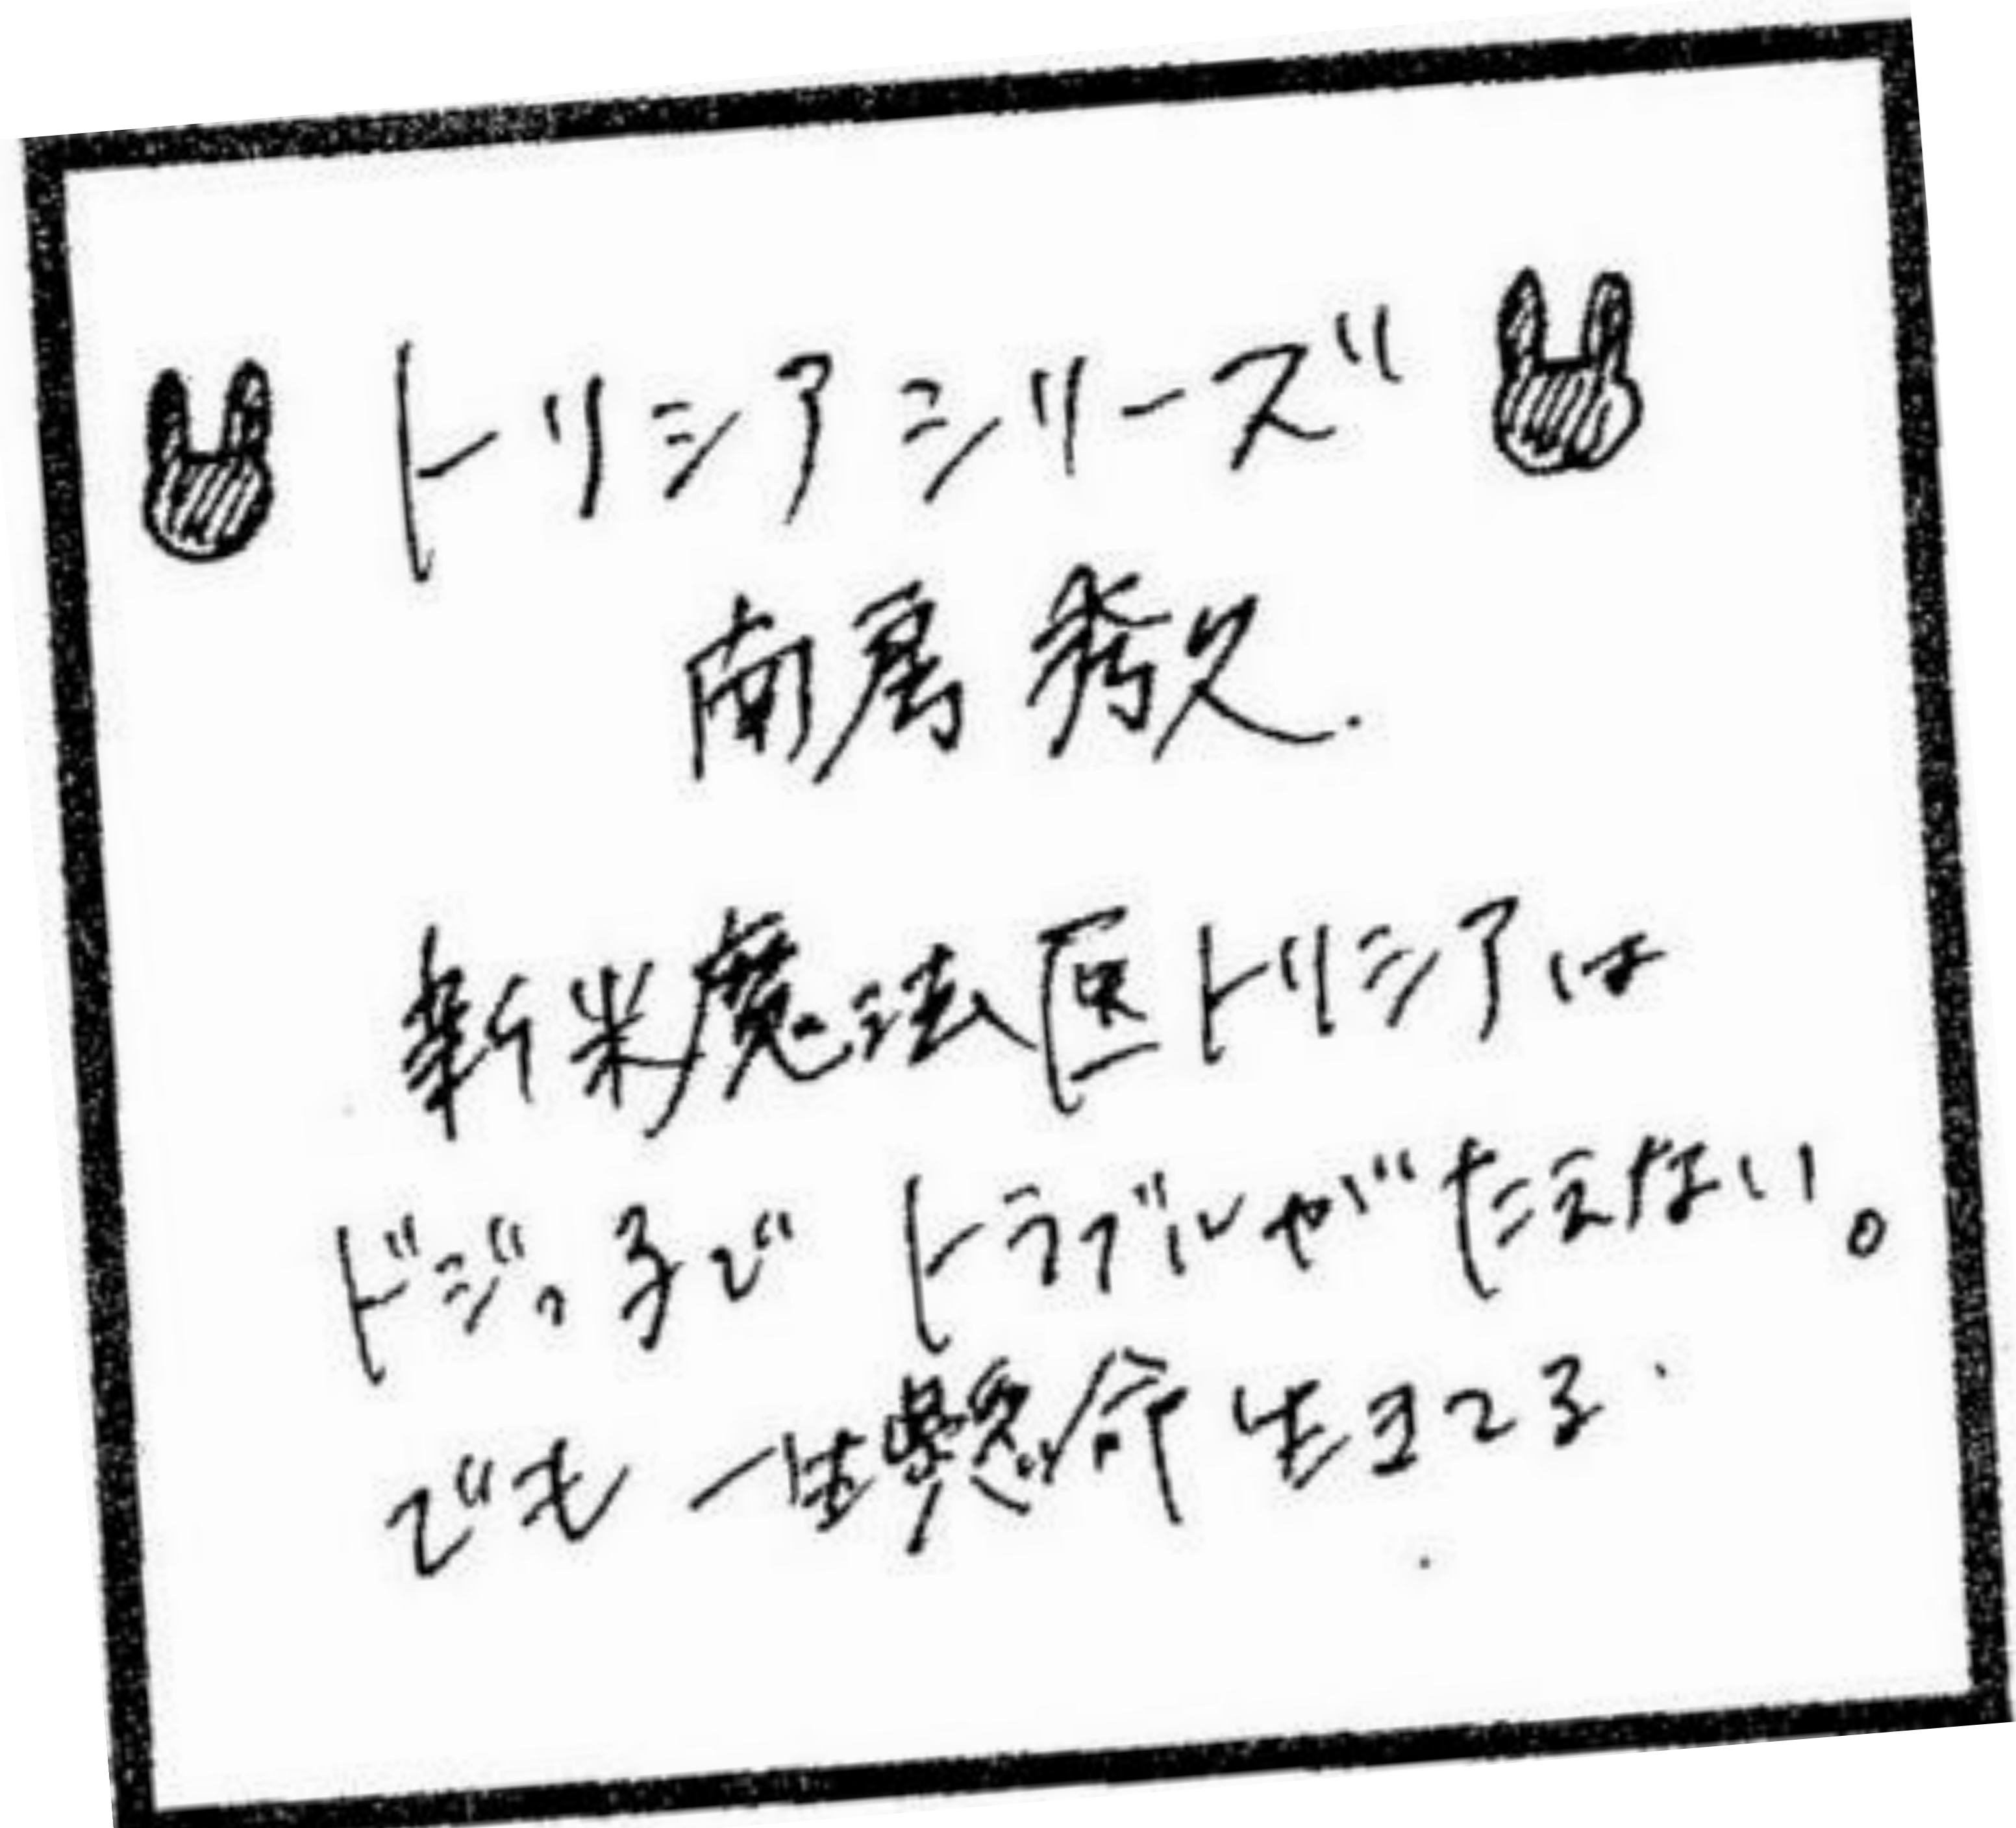 トリシアシリーズ
南房秀久.
新米魔法医トリシアは
ドジっ子で トラブルがたえない。
でも 一生懸命 生きてる